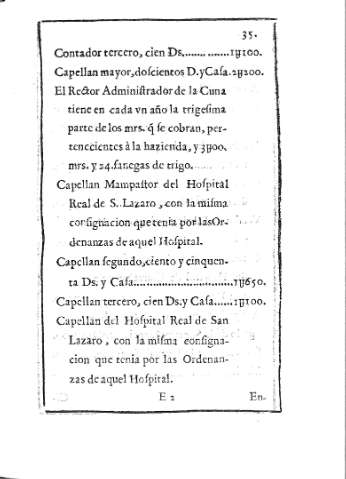 35.
Contador tercero, cien Ds..............1ꝡ100.
Capellan mayor, doſcientos D. y Caſa.2ꝡ200.
El Rector Adminiſtrador de la Cuna
tiene en cada vn año la trigeſima
parte de los mrs. q̃ ſe cobran, per-
tenecientes à la hazienda, y 3ꝡ00.
mrs. y 24. fanegas de trigo.
Capellan Mampaſtor del Hoſpital
Real de S. Lazaro, con la miſma
conſignacion que tenia por las Or-
denanzas de aquel Hoſpital.
Capellan ſegundo, ciento y cinquen-
ta Ds. y Caſa..............................1ꝡ650.
Capellan tercero, cien Ds. y Caſa......1ꝡ100.
Capellan del Hoſpital Real de San
Lazaro, con la miſma conſigna-
cion que tenia por las Ordenan-
zas de aquel Hoſpital.
E 2 En-